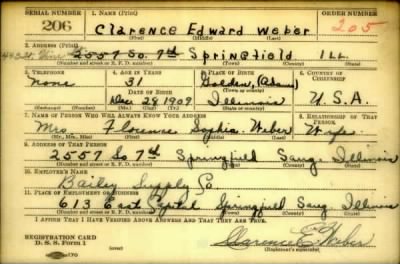 SERIAL NUMBER 1. NAME (Print) ORDER NUMBER
206 Clarence Edward Weber 205
(First) (Middle) (Last)
2. ADDRESS (Print)
2557 So. 7th Springfield Ill.
(Number and street or R. F. D. number) (Town) (County) (State)
3. TELEPHONE 4. AGE IN YEARS 5. PLACE OF BIRTH 6. COUNTRY OF CITIZENSHIP
none 31 Golden (Adams)
DATE OF BIRTH (Town or county)
Dec 28 1909 Illinois U.S.A.
(Mo.) (Day) (Yr.) (State or country)
7. NAME OF PERSON WHO WILL ALWAYS KNOW YOUR ADDRESS 8. RELATIONSHIP OF THAT PERSON
Mrs Florence Sophia Weber Wife
(Mr., Mrs., Miss) (First) (Middle) (Last)
9. ADDRESS OF THAT PERSON
2557 So 7th Springfield Sang. Illinois
(Number and street or R. F. D. number) (Town) (County) (State)
10. EMPLOYER'S NAME
Baily Supply Co
11. PLACE OF EMPLOYMENT OR BUSINESS
613 East Capital Springfield Sang. Illinois
(Number and street or R. F. D. number) (Town) (County) (State)
I AFFIRM THAT I HAVE VERIFIED ABOVE ANSWERS AND THAT THEY ARE TRUE.
REGISTRATION CARD
D. S. S. Form 1 Clarence E. Weber
(Registrant's signature)